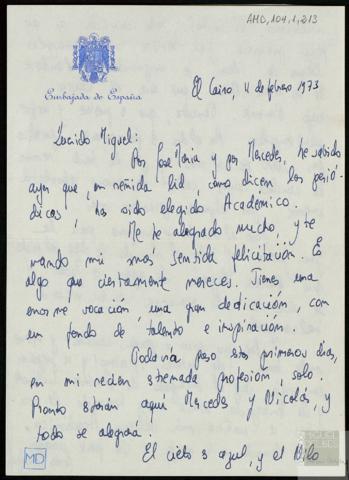 AMD, 104, 1, 213
Embajada de España
El Cairo, 4 de febrero 1973
Querido Miguel:
Por José María y por Mercedes, he sabido
ayer que, en reñida lid, como dicen los perió-
dicos, has sido elegido Académico.
Me he alegrado mucho, y te
mando mi más sentida felicitación. Es
algo que ciertamente mereces. Tienes una
enorme vocación, una gran dedicación, con
un fondo de talento e inspiración.
Todavía paso estos primeros días,
en mi recien estrenada profesión, solo.
Pronto estarán aquí Mercedes y Nicolás, y
todo se alegrará.
El cielo es azul, y el Nilo
MD